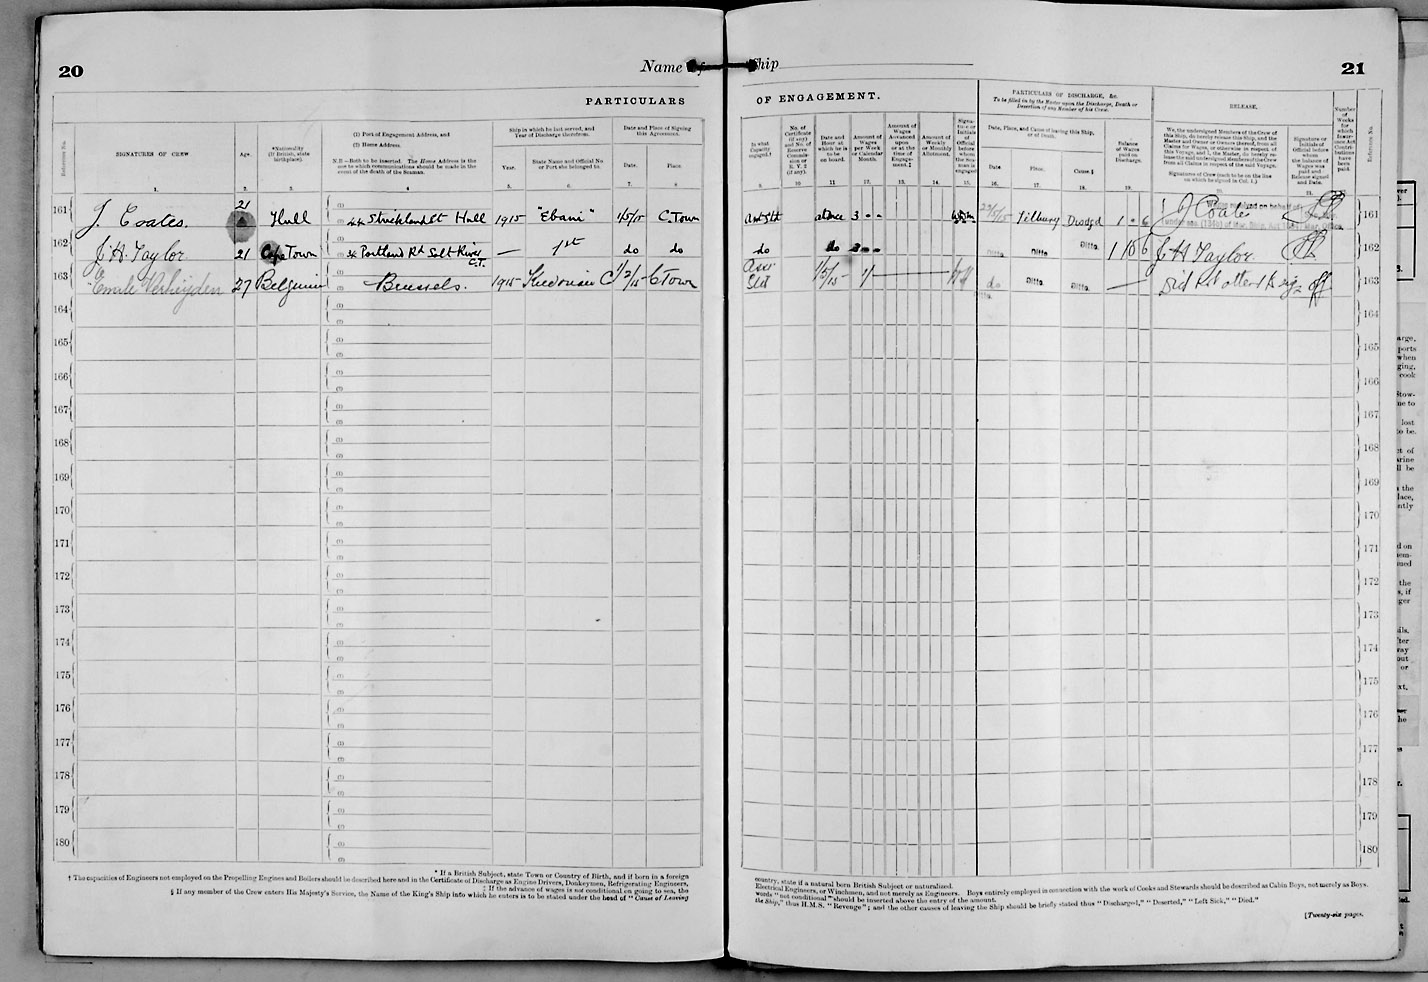 20
Name of Ship
21
PARTICULARS
OF ENGAGEMENT.
PARTICULARS OF DISCHARGE, &c.
To be filled in by the Master upon the Discharge, Death or
Desertion of any Member of his Crew.
RELEASE.
Reference No.
SIGNATURES OF CREW
Age.
*Nationality
(If British, state
birthplace).
(1) Port of Engagement Address, and
(2) Home Address.
N.B.—Both to be inserted. The Home Address is the
one to which communications should be made in the
event of the death of the Seaman.
Ship in which he last served, and
Year of Discharge therefrom.
Year.
State Name and Official No.
or Port she belonged to.
Date and Place of Signing
this Agreement.
Date.
Place
In what
Capacity
engaged.†
No. of
Certificate
(if any)
and No. of
Reserve
Commis-
sion or
R. V. 2
(if any).
Date and
Hour at
which he is
to be
on board.
Amount of
Wages
per Week
or Calendar
Month.
Amount of
Wages
Advanced
upon
or at the
time of
Engage-
ment.‡
Amount of
Weekly
or Monthly
Allotment.
Signa-
ture or
Initials
of
Official
before
whom
the Sea-
man is
engaged
Date, Place, and Cause of leaving this Ship,
or of Death.
Date
Place.
Cause.§
Balance
of Wages
paid on
Discharge.
We, the undersigned Members of the Crew of
this Ship, do hereby release this Ship, and the
Master and Owner or Owners thereof, from all
Claims for Wages, or otherwise in respect of
this Voyage, and I, the Master, do hereby re-
lease the said undersigned Members of the Crew
from all Claims in respect of the said Voyage.
Signatures of Crew (each to be on the line
on which he signed in Col. 1.)
Signature or
Initials of
Official before
whom
the balance of
Wages was
paid and
Release signed
and Date.
Number
of
Weeks
for
which
Insur-
ance Act
Contri-
butions
have
been
paid.
Reference No.
1. 2. 3. 4 5. 6. 7. 8 9. 10 11 12. 13. 14. 15 16. 17. 18. 19. 20. 21.
161 J. Coates. 21 Hull 44 Strickland St Hull 1915 "Ebani" 1/5/15 C.Town at once 3 - - Tilbury Disdgd 1 - 6 J Coates 161
162 J H Taylor 21 Cape Town Portland Rd Salt River C.T. — 1st do do do do 3 - - Ditto Ditto Ditto. 1 10 6 J H Taylor 162
163 Emile Verheyden 27 Belgium Brussels. 1915 C Town Ditto. Ditto. — Did not attend 163
164 164
165 165
166 166
167 167
168 168
169 169
170 170
171 171
172 172
173 173
174 174
175 175
176 176
177 177
178 178
179 179
180 180
* If a British Subject, state Town or Country of Birth, and if born in a foreign
country, state if a natural born British Subject or naturalized.
† The capacities of Engineers not employed on the Propelling Engines and Boilers should be described here and in the Certificate of Discharge as Engine Drivers, Donkeymen, Refrigerating Engineers,
Electrical Engineers, or Winchmen, and not merely as Engineers. Boys entirely employed in connection with the work of Cooks and Stewards should be described as Cabin Boys, not merely as Boys.
‡ If the advance of wages is not conditional on going to sea, the
words "not conditional" should be inserted above the entry of the amount.
§ If any member of the Crew enters His Majesty's Service, the Name of the King's Ship into which he enters is to be stated under the head of "Cause of Leaving
the Ship," thus H.M.S. "Revenge"; and the other causes of leaving the Ship should be briefly stated thus "Discharged," "Deserted," "Left Sick," "Died."
[Twenty-six pages.